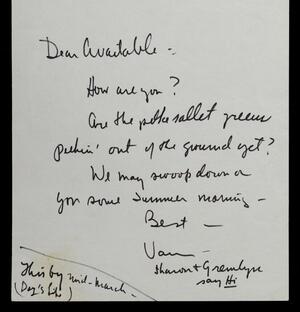 Dear Avatable -
How are you?
Are the polke sallet greens
peekin' out of the ground yet?
We may swoop down on
you some summer morning -
Best -
Van -
Sharon + Gremlyn
say Hi
This by mid-March -
(Day's